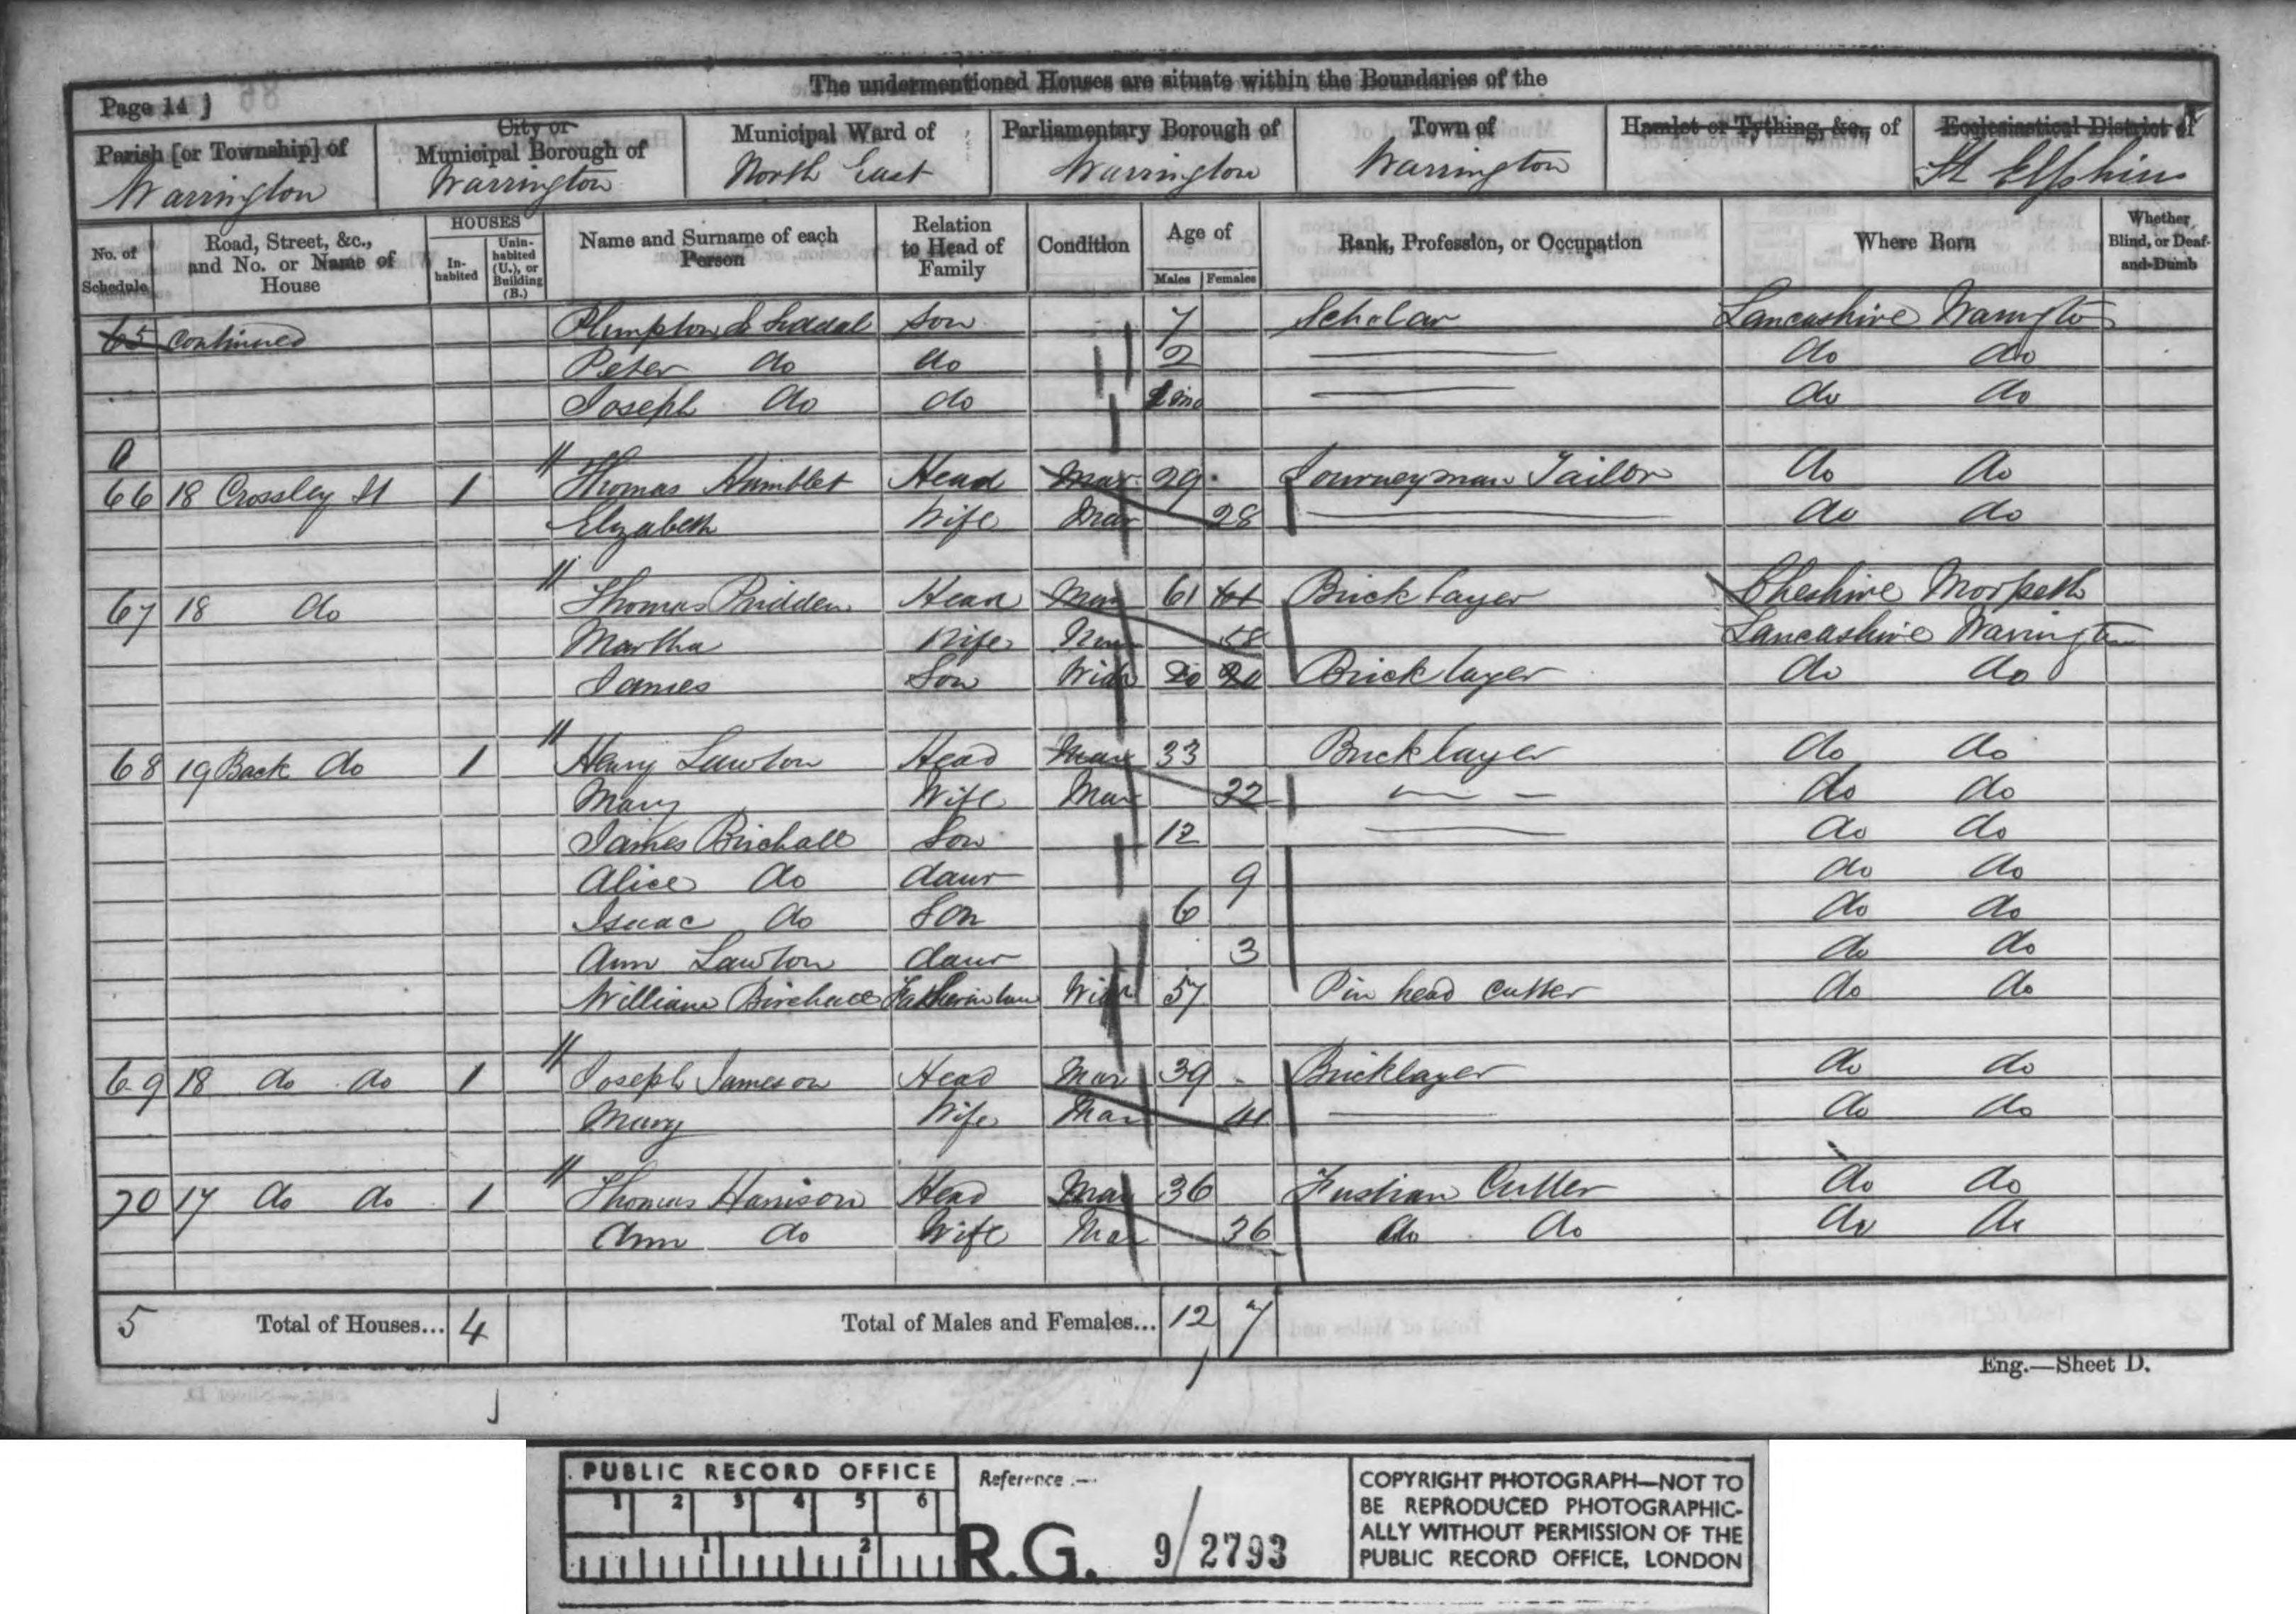 The undermentioned Houses are situate within the Boundaries of the
Page 14
Parish [or Township] of
Warrington
City or
Municipal Borough of
Warrington
Municipal Ward of
North East
Parliamentary Borough of
Warrington
Town of
Warrington
Hamlet or Tything, &c., of
Ecclesiastical District of
St Elphins
No. of Schedule
Road, Street, &c., and No. or Name of House
HOUSES
In-habited
Unin-habited (U.), or Building (B.)
Name and Surname of each Person
Relation to Head of Family
Condition
Age of
Males
Females
Rank, Profession, or Occupation
Where Born
Whether Blind, or Deaf-and-Dumb
65 Continued Plimpton Son 7 Scholar Lancashire Warrington
Peter do do 2 do do
Joseph do do do do
66 18 Crossley St 1 Thomas Hamblet Head Mar 29 Journeyman Tailor do do
Elizabeth Wife Mar 28 do do
67 18 do Thomas Pridden Head Mar 61 Bricklayer Cheshire Morpeth
Martha Wife Mar 58 Lancashire Warrington
James Son Widr 20 Bricklayer do do
68 19 Back do 1 Henry Lawton Head Mar 33 Bricklayer do do
Mary Wife Mar 32 do do
James Birchall Son 12 do do
Alice do daur 9 do do
Isaac do Son 6 do do
Ann Lawton daur 3 do do
William Birchall Fatherinlaw Widr 57 Pin head cutter do do
69 18 do do 1 Joseph Jameson Head Mar 39 Bricklayer do do
Mary Wife Mar 41 do do
70 17 do do 1 Thomas Harrison Head Mar 36 Fustian Cutter do do
Ann do Wife Mar 36 do do do do
5 Total of Houses... 4 Total of Males and Females... 12 7
Eng.—Sheet D.
PUBLIC RECORD OFFICE
1 2 3 4 5 6
1 2
Reference :-
R.G. 9/2793
COPYRIGHT PHOTOGRAPH—NOT TO
BE REPRODUCED PHOTOGRAPHIC-
ALLY WITHOUT PERMISSION OF THE
PUBLIC RECORD OFFICE, LONDON